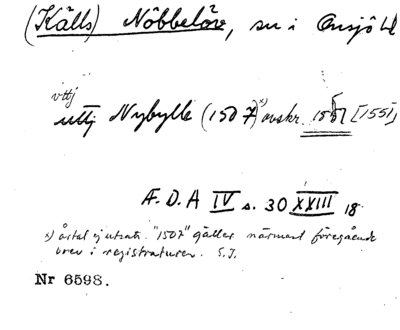 (Källs) Nöbbelöv, sn i Onsjö hd
vttj
uttj Nybylle (1507)x) avskr. 1551 [1551]
Æ.D.A IV s. 30 XXIII 18
x) årtal ej utsatt. "1507" gäller närmast föregående
brev i registraturen. S.J.
Nr 6598.